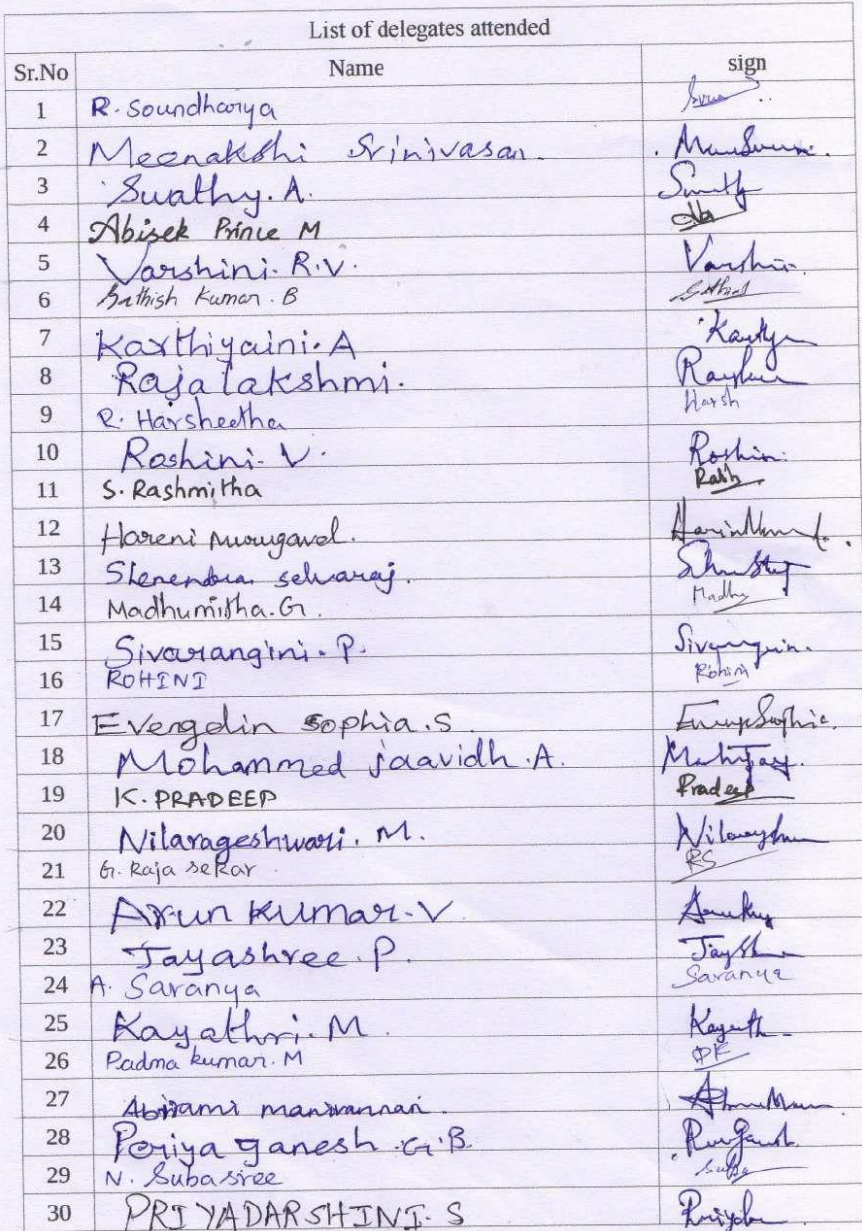 List of delegates attended
Sr.No Name sign
1 R. Soundharya
2 Meenakshi Srinivasan.
3 Swathy. A.
4 Abisek Prince M
5 Varshini. R.V. Varshin
6 Sathish Kumar. B Sathish
7 Karthiyaini. A
8 Rajalakshmi.
9 R. Harsheetha Harsh
10 Roshini. V. Roshin
11 S. Rashmitha Rash
12 Hareni Murugavel.
13 Shenendra selvaraj.
14 Madhumitha. G. Madhu
15 Sivarangini. P.
16 ROHINI Rohini
17 Evengelin Sophia. S
18 Mohammed jaavidh. A.
19 K. PRADEEP Pradeep
20 Nilarageshwari. M.
21 G. Raja sekar RS
22 Arun Kumar. V
23 Jayashree. P.
24 A. Saranya Saranya
25 Kayathri. M
26 Padma kumar. M PK
27 Abirami manivannan.
28 Poriya ganesh. G. B.
29 N. Subasree Suba
30 PRIYADARSHINI. S